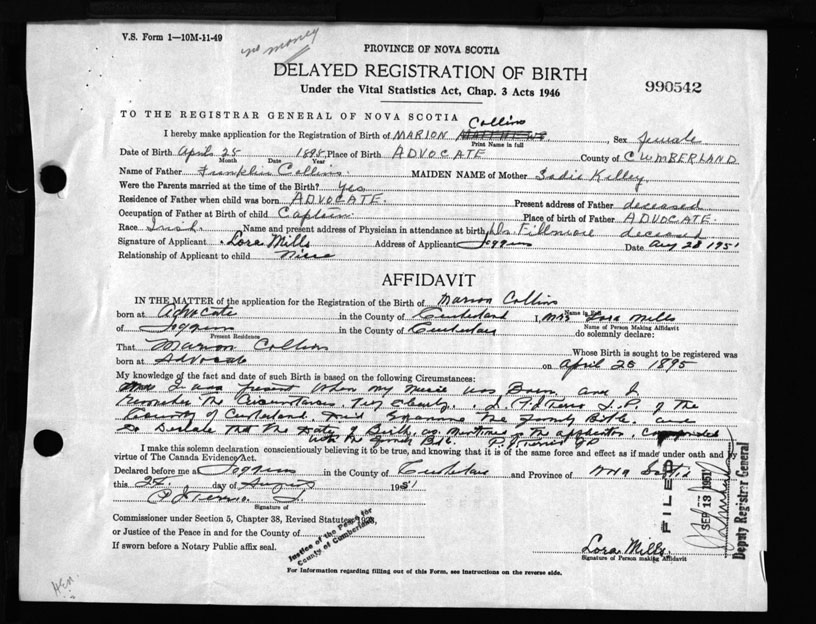 V.S. Form 1—10M-11-49
no money
PROVINCE OF NOVA SCOTIA
DELAYED REGISTRATION OF BIRTH
990542
Under the Vital Statistics Act, Chap. 3 Acts 1946
TO THE REGISTRAR GENERAL OF NOVA SCOTIA
Collins
I hereby make application for the Registration of Birth of MARION MATTHEWS, Sex female
Print Name in full
Date of Birth April 25 1895, Place of Birth ADVOCATE County of CUMBERLAND
Month Date Year
Name of Father Franklin Collins MAIDEN NAME of Mother Sadie Kelley
Were the Parents married at the time of the Birth? Yes
Residence of Father when child was born ADVOCATE. Present address of Father deceased
Occupation of Father at Birth of child Captain Place of birth of Father ADVOCATE.
Race Irish Name and present address of Physician in attendance at birth Dr. Fillmore deceased
Signature of Applicant Lora Mills Address of Applicant Joggins Date Aug 28 1951
Relationship of Applicant to child Niece
AFFIDAVIT
IN THE MATTER of the application for the Registration of the Birth of Marion Collins
born at Advocate in the County of Cumberland I, Mrs Lora Mills
Name in Full
of Joggins in the County of Cumberland do solemnly declare:
Present Residence Name of Person Making Affidavit
That Marion Collins Whose Birth is sought to be registered was
born at Advocate on April 25 1895
My knowledge of the fact and date of such Birth is based on the following Circumstances:
I was present when my niece was Born and I
remember the Circumstances J.P. of the
County of Cumberland, Examine the Family Bible, and
So Declare that the Date of Birth as
with the family Bible. J.P
I make this solemn declaration conscientiously believing it to be true, and knowing that it is of the same force and effect as if made under oath and by
virtue of The Canada Evidence Act.
Declared before me at Joggins in the County of Cumberland and Province of Nova Scotia
this day of August 1951
Signature of
Commissioner under Section 5, Chapter 38, Revised Statutes 1923,
or Justice of the Peace in and for the County of
If sworn before a Notary Public affix seal.
Justice of the Peace for
County of Cumberland
FILED
SEP 13 1951
Deputy Registrar General
Lora Mills
Signature of Person making Affidavit
For Information regarding filling out of this Form, see Instructions on the reverse side.